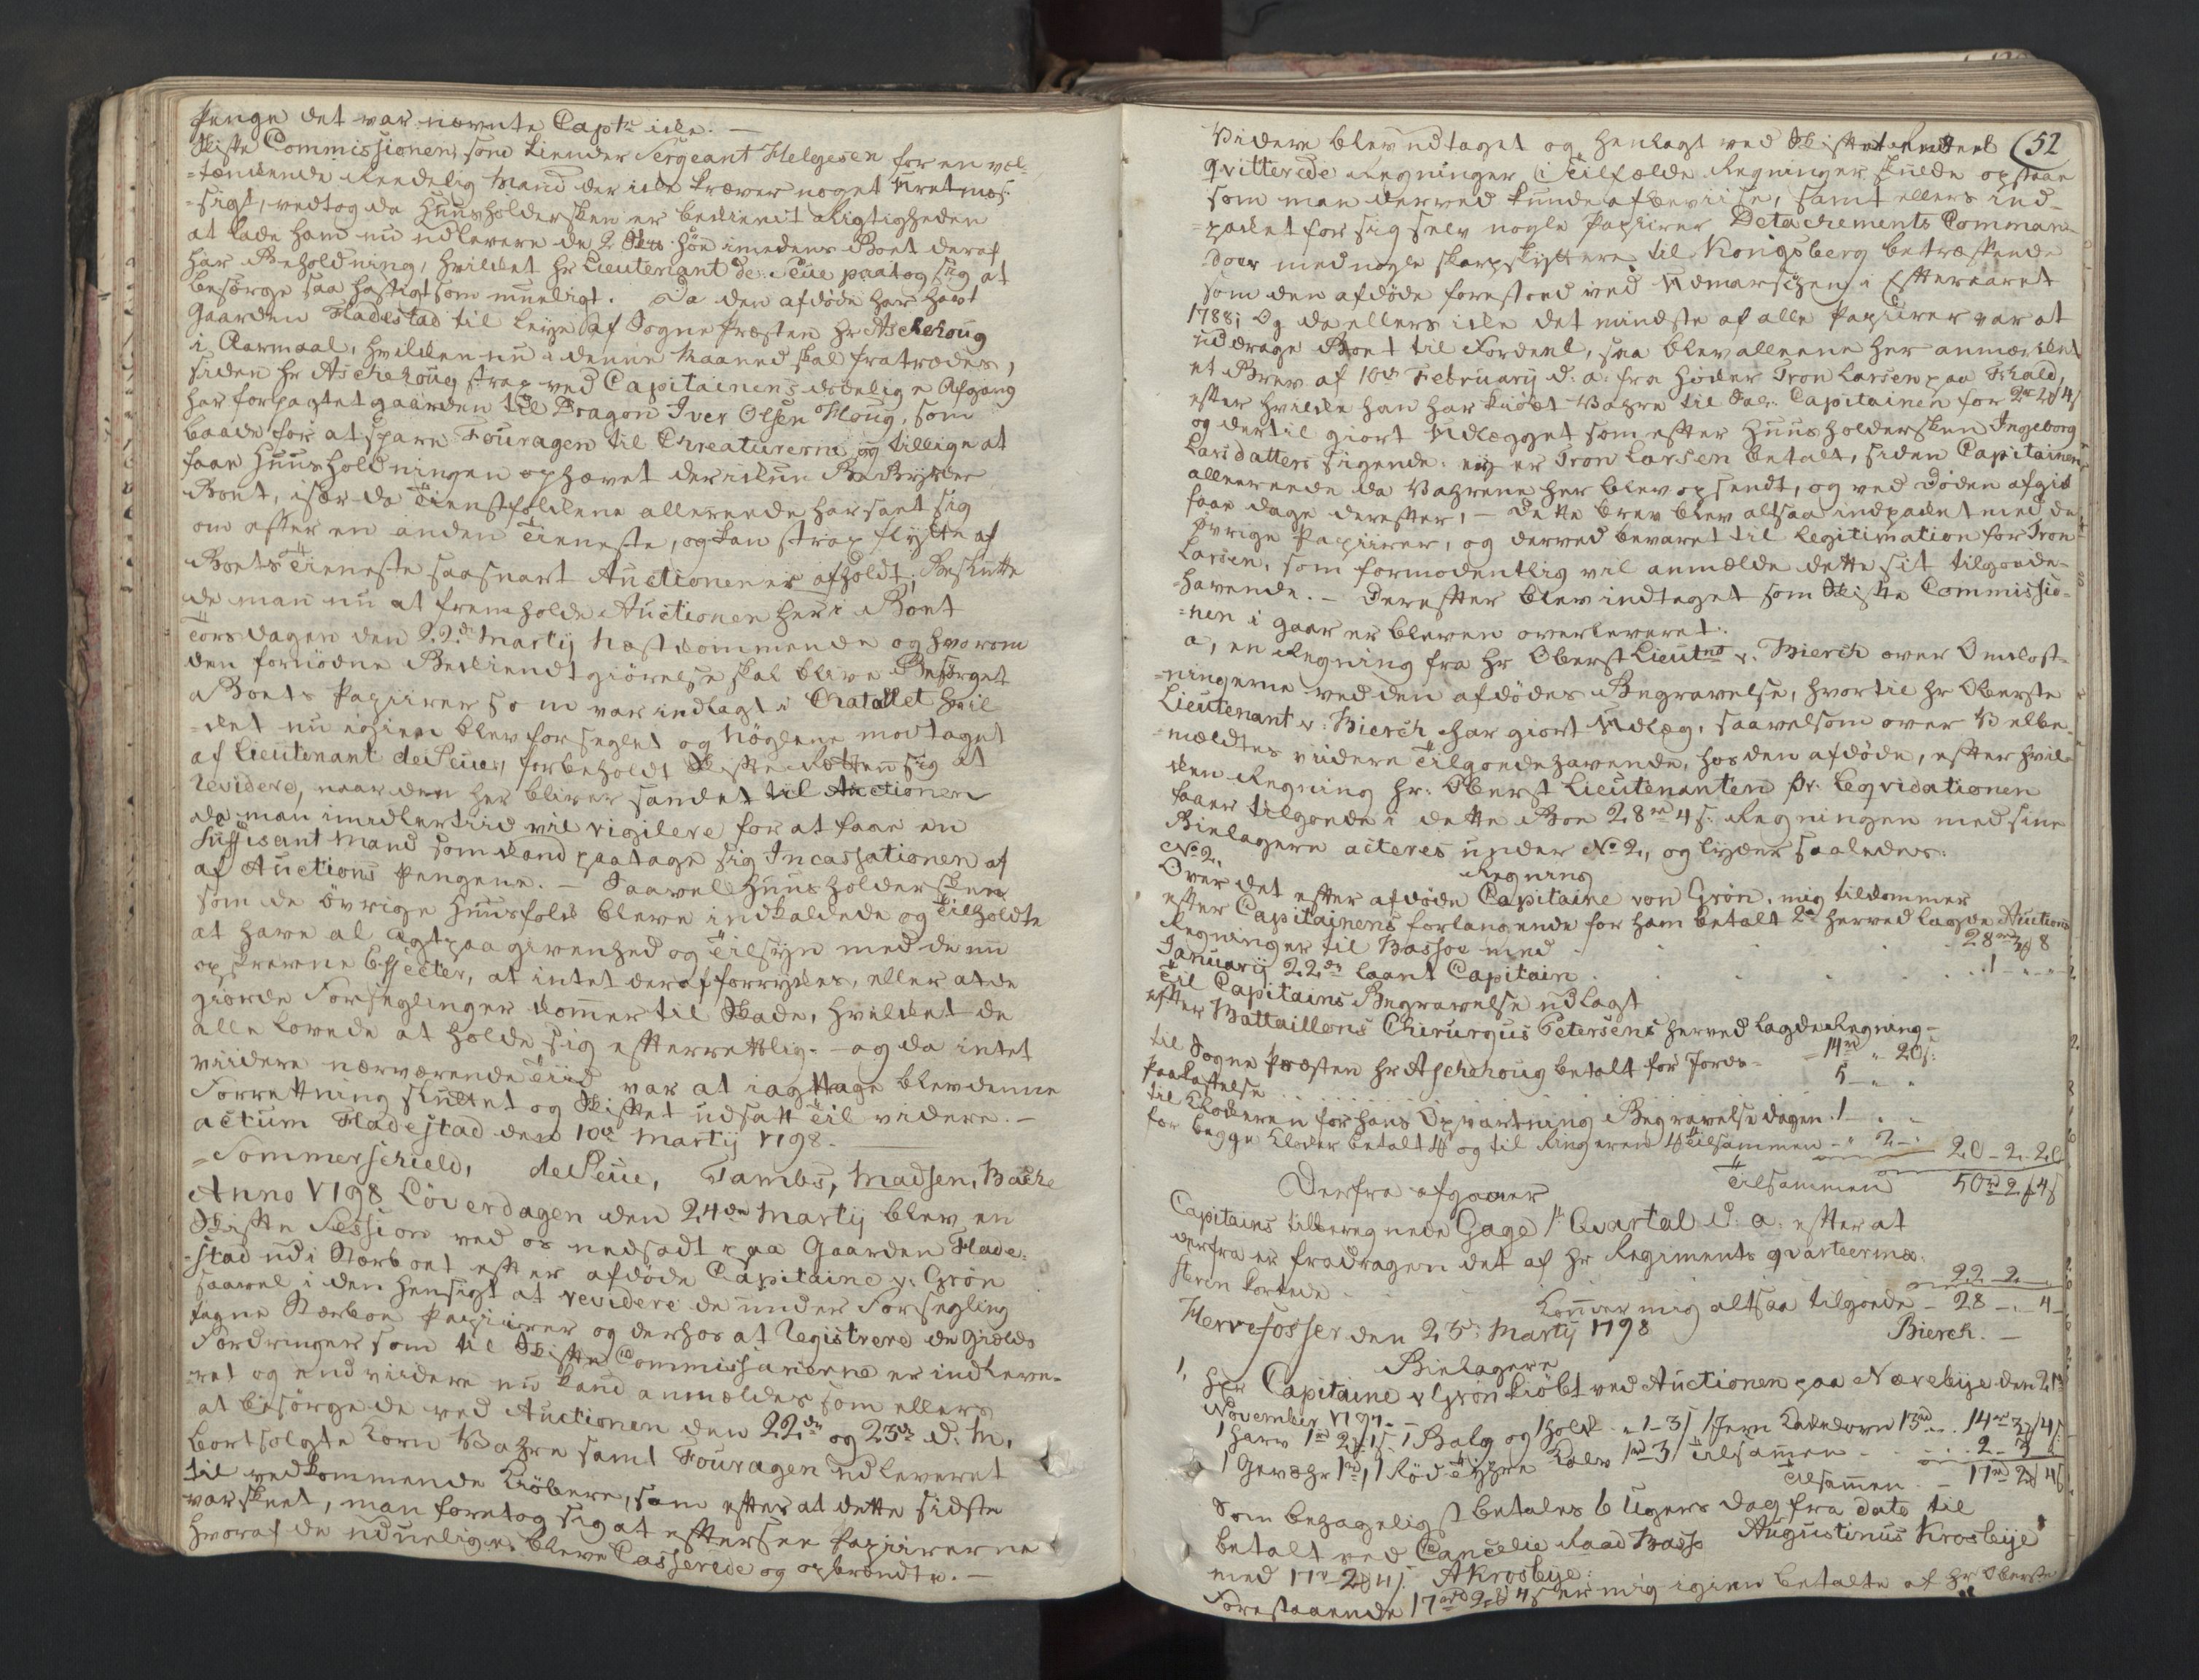 Penge det var nævnte Captn icke. —
Skifte Commissionen, som kiender Sergeant Helgesen for en vel-
=tænkende Reedelig Mand der icke kræver noget Uretmæs-
=sigt, vedtog da Huusholdersken er bekiendt Rigtigheden
at lade ham nu udlevere de 2 Skr. Høe imedens Boet deraf
har Beholdning, hvilket Hr Lieutenant de Seue paatog sig at
besørge saa hastigt som mueligt. Da den afdøde har havt
Gaarden Fladestad til leye af Sogne Præsten Hr Aschehoug
i Aarmaal, hvilken nu i denne Maaned skal fratrædes,
siden Hr Aschehoug strax ved Capitainens dødelige Afgang
har forpagtet gaarden til Dragon Iver Olsen Houg, som
baade for at spare Fouragen til Creaturerne og tillige at
faae Huusholdningen ophævet der ickun Bebyrder
Boet, især da Tienstfolkene allereede har sa͡et sig
om efter en anden Tieneste, og kan strax flytte af
Boets Tieneste saasnart Auctionen er afholdt; Besluttede
de man nu at fremholde Auctionen her i Boet
Torsdagen den 22de Martij Næstkommende og hvorom
den fornødne Bekiendtgiørelse skal blive Besørget
a Boets Papiirer som var indlagt i Chatollet hvil
=det nu igien blev forseglet og Nøglene modtaget
af Lieutenant de Seue, forbeholdt Skifte Retten sig at
revidere, naar den her bliver samlet til Auctionen
da man imidlertiid vil vigilere for at faae en
suffisant Mand som kand paatage sig Incassationen af
af Auctions Pengene. — Saavel Huusholdersken
som de øvrige Huusfolk bleve indkaldede og Tilholdte
at have al Agtpaagivenhed og Tilsyn med de nu
opskrevne Effecter, at intet deraf forrykkes, eller at de
giorde Forseglinger kommer til Skade, hvilket de
alle lovede at holde sig efterrettlig. — og da intet
viidere nærværende Tiid var at iagttage blev denne
Forretning sluttet og Skiftet udsatt Til videre. —
actum Fladestad den 10de Martij 1798.
=Sommerschield, de Seue, Tambs, Madsen, Bache
Anno 1798 Løverdagen den 24de Martij blev en
Skifte Session ved os nedsadt paa Gaarden Flade-
=stad udi Stærboet efter afdøde Capitaine v: Grøn
saavel i den Hensigt at revidere de under Forsegling
tagne Stærboe Papiirer og derhos at Registrere de Gields
Fordringer som til Skifte Commissarierne er indleve-
ret og end viidere nu kand anmældes som ellers
at besørge de ved Auctionen den 22de og 23de d: M:
bortsolgte Korn Vahre samt Fouragen udleveret
til vedkommende Kiøbere, som efter at dette sidste
var skeet, man foretog sig at eftersee Papiirerne
hvoraf de uduelige bleve Casserede og opbrændte. —
Videre blev udtaget og henlagt ved Skiftet endeel (52
qvitterede Regninger i Tilfælde Regninger skulde opstaae
som man derved kunde afbeviise, samt ellers ind-
=packet for sig selv nogle Papiirer Detachements Comman-
doer med nogle skarpskyttere til Kongsberg betræffende
som den afdøde forestoed ved Udmarschen i Efteraaret
1788; Og da ellers icke det mindste af alle Papiirer var at
uddrage Boet til Fordeel, saa blev alleene her anmærket
et Brev af 10de February d: a: fra Høker Tron Larsen paa Fhald,
efter hvilke han har kiøbt Vahre til Sal: Capitainen for 2rd 2ß 4s
og dertil giort Udlægget som efter Huusholdersken Ingeborg
Larsdatters sigende: ey er Tron Larsen betalt, siden Capitainen
allereede da Vahrene her blev opsendt, og ved Døden afgik
faae dage derefter, — dette brev blev altsaa indpacket med de
øvrige Papiirer, og derved bevaret til Legitimation for Tron
Larsen, som formodentlig vil anmelde dette sit tilgode-
=havende. — Derefter blev indtaget som Skifte Commissio-
=nen i gaar er bleven overleveret.
a, en Regning fra Hr Oberst Lieutnt v. Bierch over Omkost-
=ningerne ved den afdødes Begravelse, hvortil Hr Oberste
Lieutenant v: Bierch har giort Udlæg, saavelsom over Velbe-
=mældtes viidere Tilgodehavende, hos den afdøde, efter hvil-
ken Regning Hr: Oberst Lieutenanten pr. Leqvidationen
faaer tilgode i dette Boe 28rd 4s: Regningen med sine
Bielagere acteres under No 2, og lyder saaledes:
No 2. Regning
Over det efter afdøde Capitaine von Grøn, mig tilkommer
efter Capitainens forlangende for ham betalt 2de herved lagde Auctions
Regninger til Bassøe med . . . . 28rd 3ß 8
Januarij 22de laant Capitain . . . . 1 — „ — „ —
Til Capitains Begravelse udlagt
efter Battaillons Chirurgus Petersens herved lagde Regning —
14rd „ 20s:
til Sogne Præsten Hr Aschehoug betalt for Jords-
Paakastelse . . . . 5 — „ „
til Klokeren for hans Opvartning Begravelsedagen . 1 — „ „
for begge Klocker betalt 1ß og til Ringeren 1ß Tilsammen — „ 2 — 20 — 2 — 20
Tilsammen 50rd 2ß 4s
Derfra afgaaer
Capitains tilberegnede Gage 1ste Qvartal d: a: efter at
derfra er fradragen det af Hr Regiments qvarteerme-
steren kortede . . . 22 — 2 — „
kommer mig altsaa tilgode — 28 — „ — 4 —
Hervefosser den 23de Martij 1798 Bierch. —
Bielagere
1, Hr Capitaine v Grøn kiøbt ved Auctionen paa Næreby den 21de
November 1797. —
1 Harv 1rd 2ß 1s. 1 Balg og 1 holk „ 1 — 3s 1 Jern Kakelovn 13rd „ . 14rd 3ß 4s
1 Gevæhr 1rd, 1 Rød Kalv 1rd 3s Tilsammen . . . 2 — 3
Tilsammen — 17rd 2ß 4s
Som behageligst betales 6 Ugers dag fra dato til
betalt ved Cancelie Raad Bassøe Augustinus Krosbye
med 17rd 2ß 4s. AKrosbye:
Forestaaende 17rd 2ß 4s er mig igien betalte af Hr Oberste